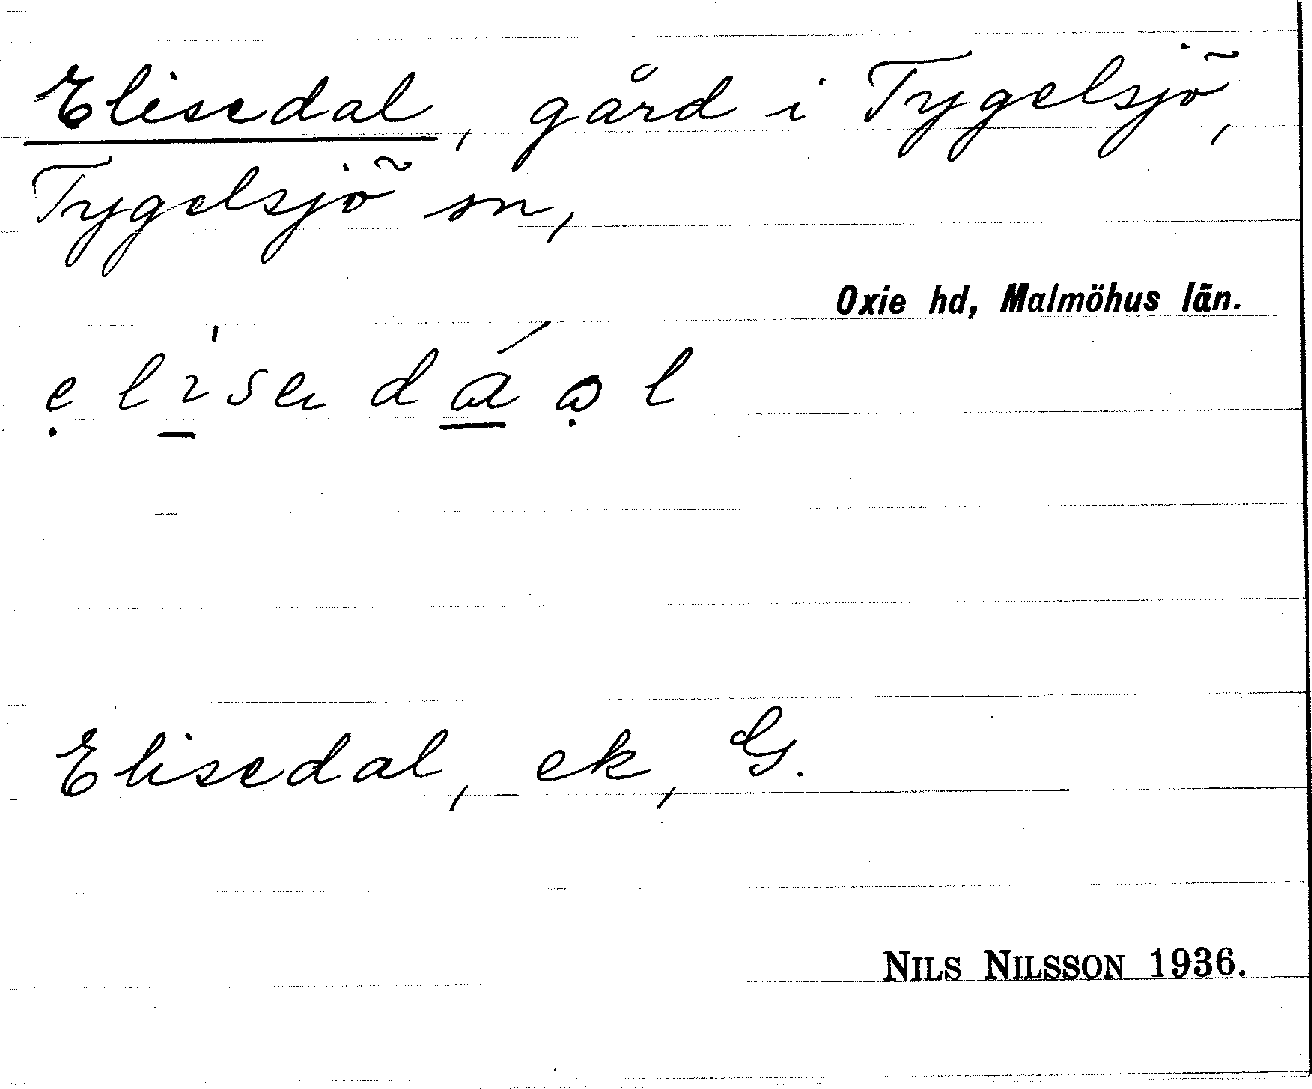 Elisedal, gård i Tygelsjö,
Tygelsjö sn,
Oxie hd, Malmöhus län.
ẹ l i̱ ́ s e d á̱ ọ l
Elisedal, ek, G.
NILS NILSSON 1936.